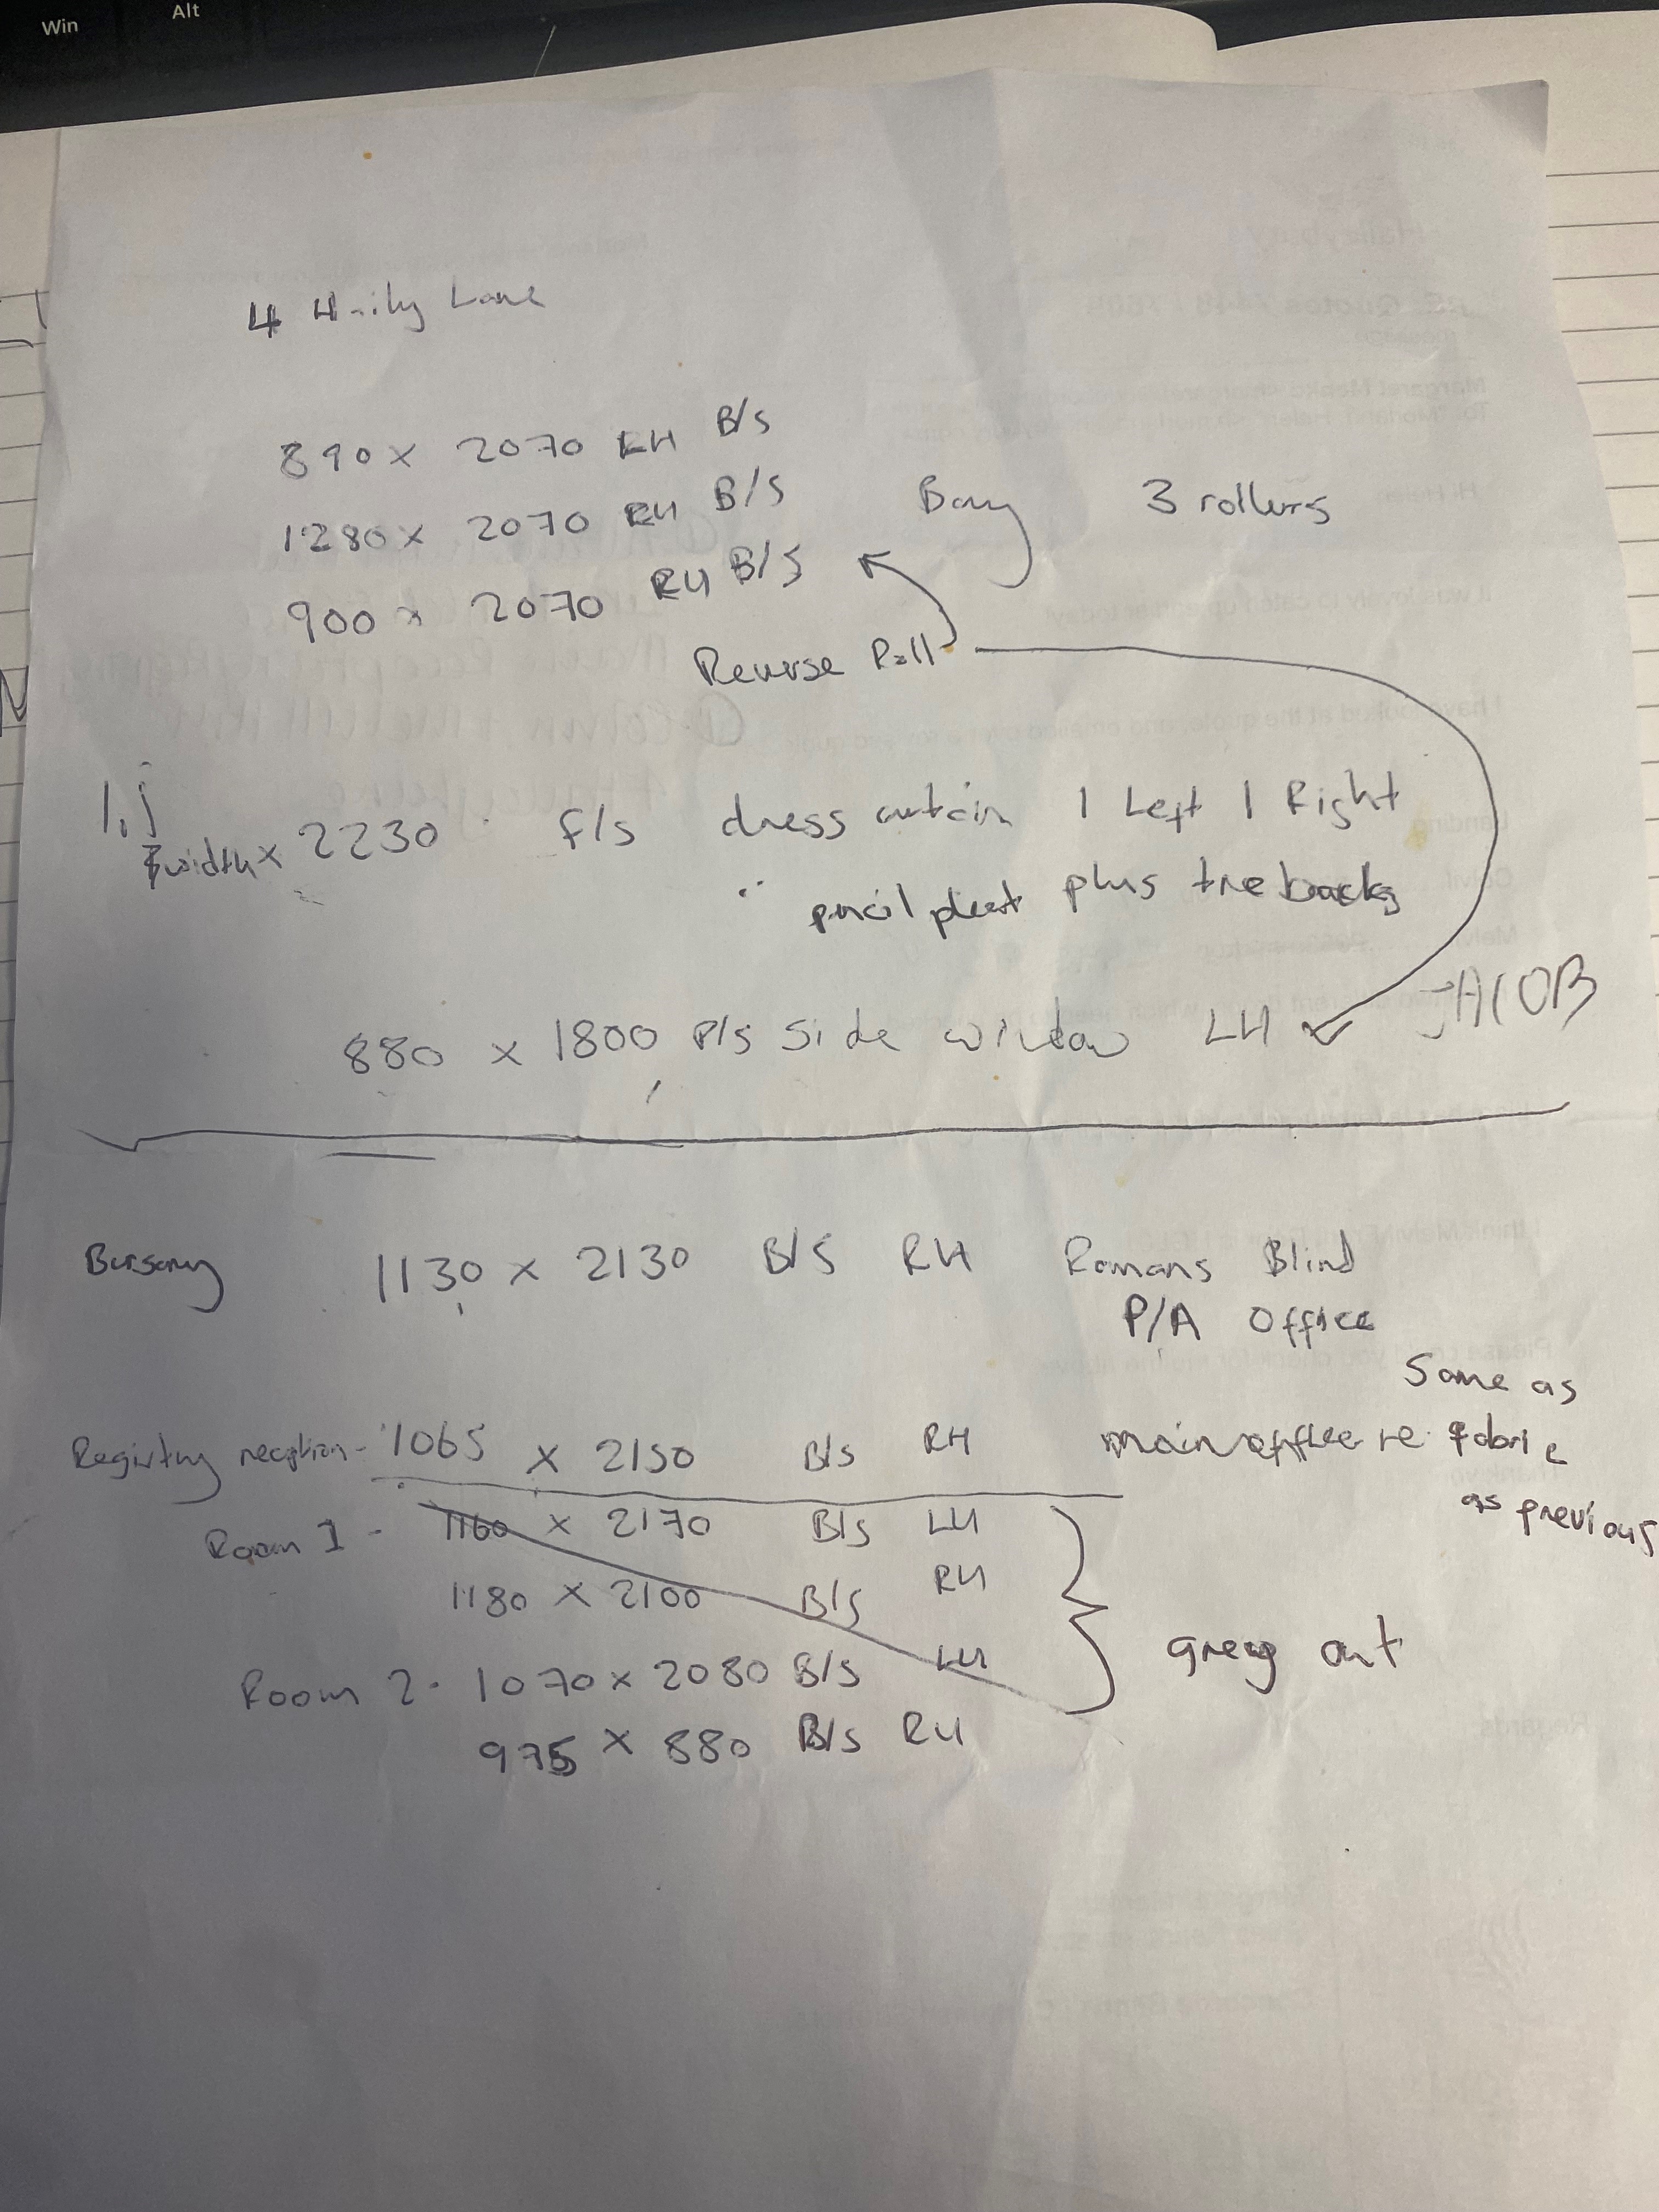 Win Alt
4 Haily Lane
890 x 2070 RH B/S
1280 x 2070 RH B/S Bay 3 rollers
900 x 2070 RH B/S
Reverse Roll
width x 2230 F/S dress curtain 1 Left 1 Right
pencil pleat plus tie backs
880 x 1800 P/S Side window LH JACOB
Bursary 1130 x 2130 B/S RH Romans Blind
P/A Office
Same as
Registry reception - 1065 x 2150 B/S RH main office re fabric
as previous
Room 1 - 1160 x 2170 B/S LH
1180 x 2100 B/S RH
grey out
Room 2 - 1070 x 2080 B/S LH
975 x 880 B/S RH